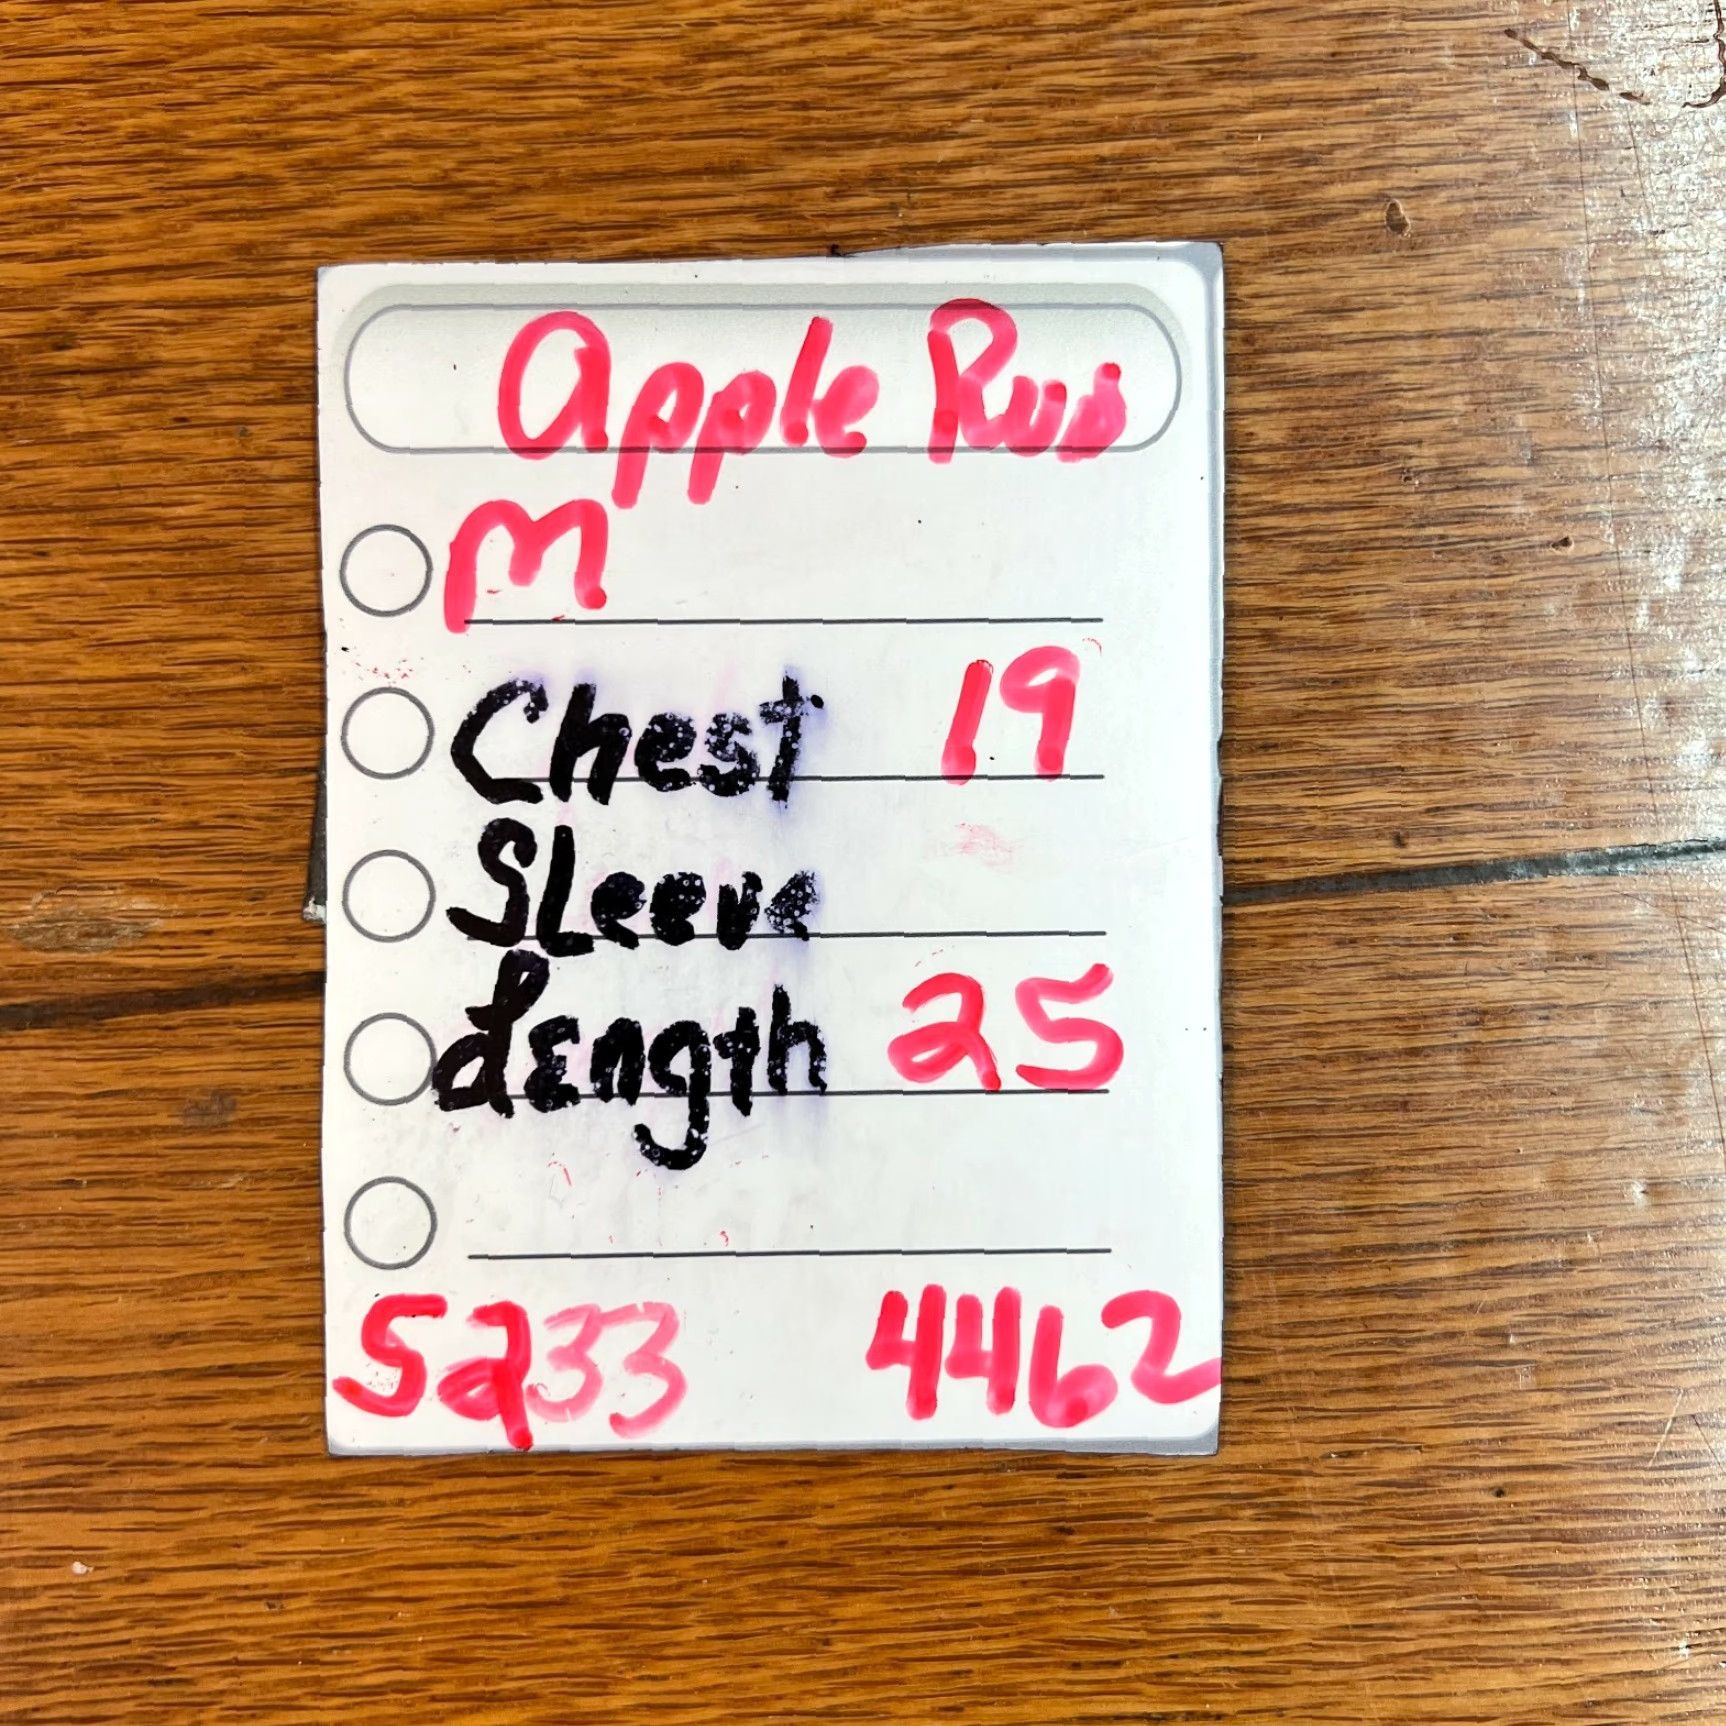 Apple Rus
M
Chest 19
Sleeve
Length 25
5233 4462